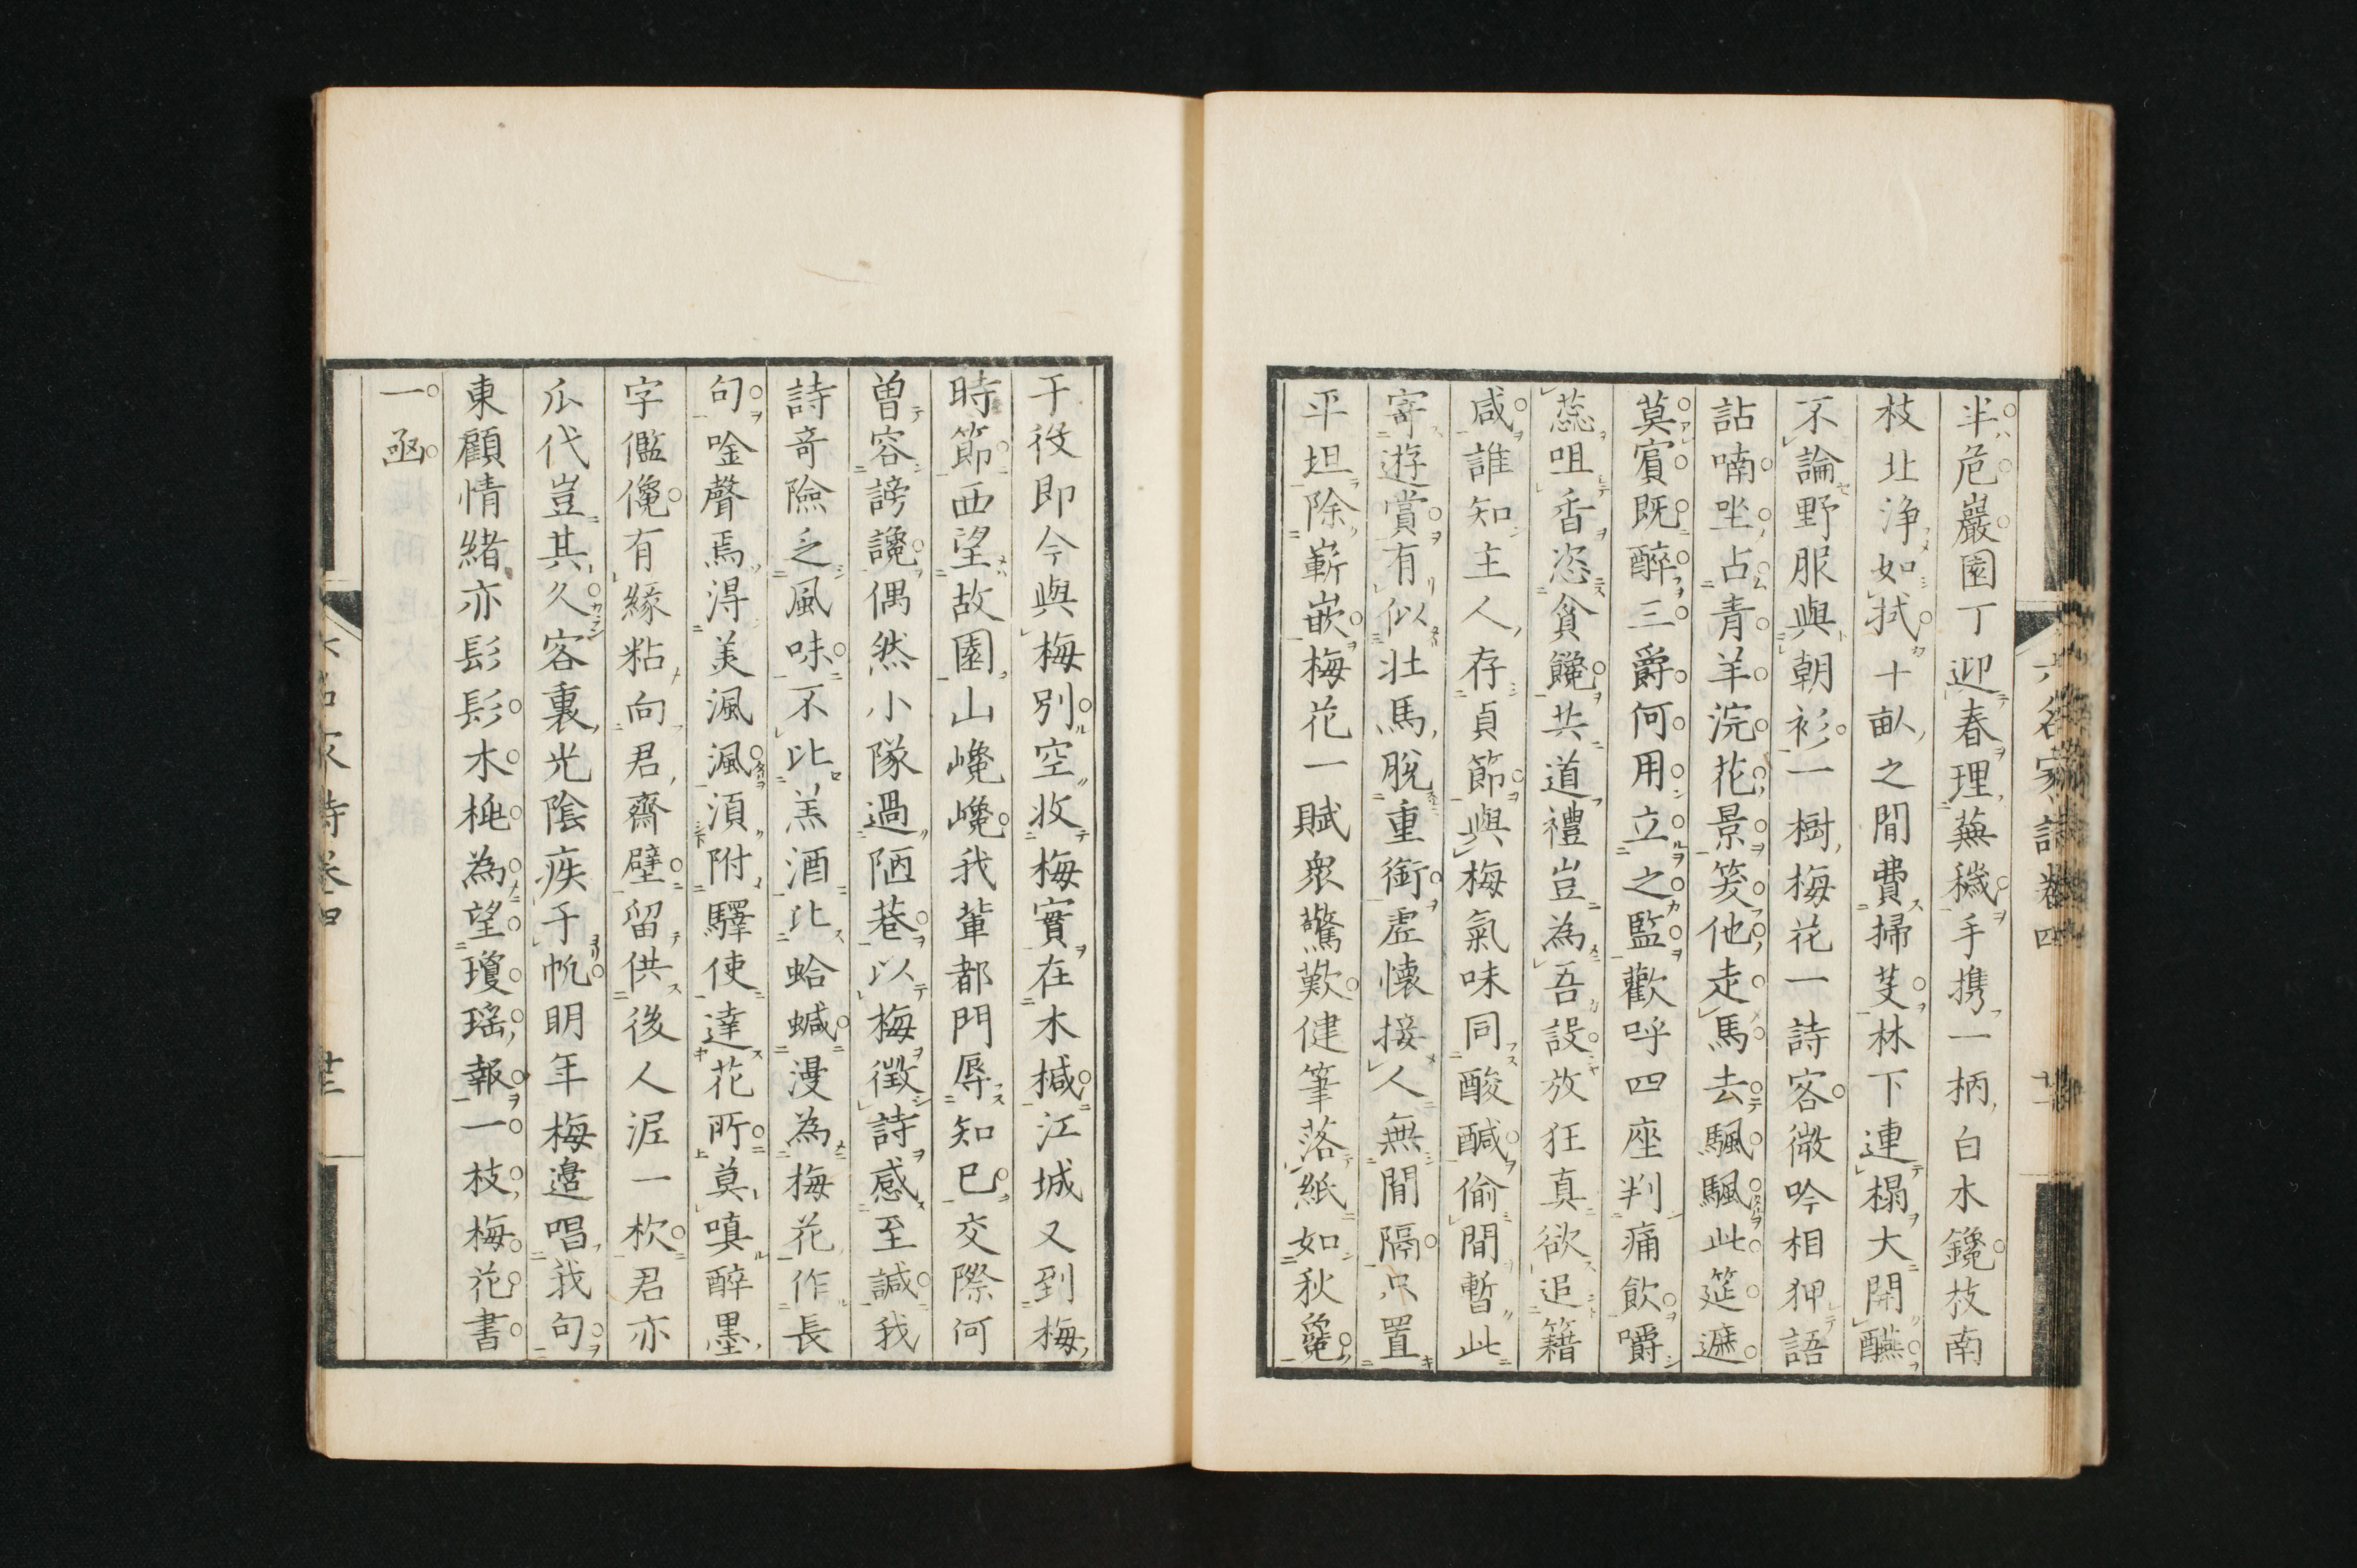 六名家詩卷四
半危巖園丁迎春理蕪穢手携一柄白木鑱枝南
枝北浄如拭十畝之間費掃芟林下連榻大開醼
不論野服與朝衫一樹梅花一詩客微吟相狎語
詀喃坐占青羊浣花景笑他走馬去颿颿此筵遮
莫賓既醉三爵何用立之監歡呼四座判痛飲嚼
蕊咀香恣貪饞共道禮豈為吾設放狂真欲追籍
咸誰知主人存貞節與梅氣味同酸醎偷閒暫此
寄遊賞有似壯馬脫重銜虛懷接人無間隔只置
平坦除嶄嵌梅花一賦衆驚歎健筆落紙如秋毚
干役即今與梅別空收梅實在木椷江城又到梅
時節西望故園山巉巉我輩都門辱知己交際何
曾容謗讒偶然小隊過陋巷以梅徵詩感至諴我
詩奇險乏風味不比羔酒比蛤䗩漫為梅花作長
句唫聲焉得美渢渢須附驛使達花所莫嗔醉墨
字儖儳有緣粘向君齋壁留供後人泥一杴君亦
瓜代豈其久客裏光陰疾于帆明年梅邊唱我句
東顧情緒亦髟髟木桃為望瓊瑤報一枝梅花書
一函